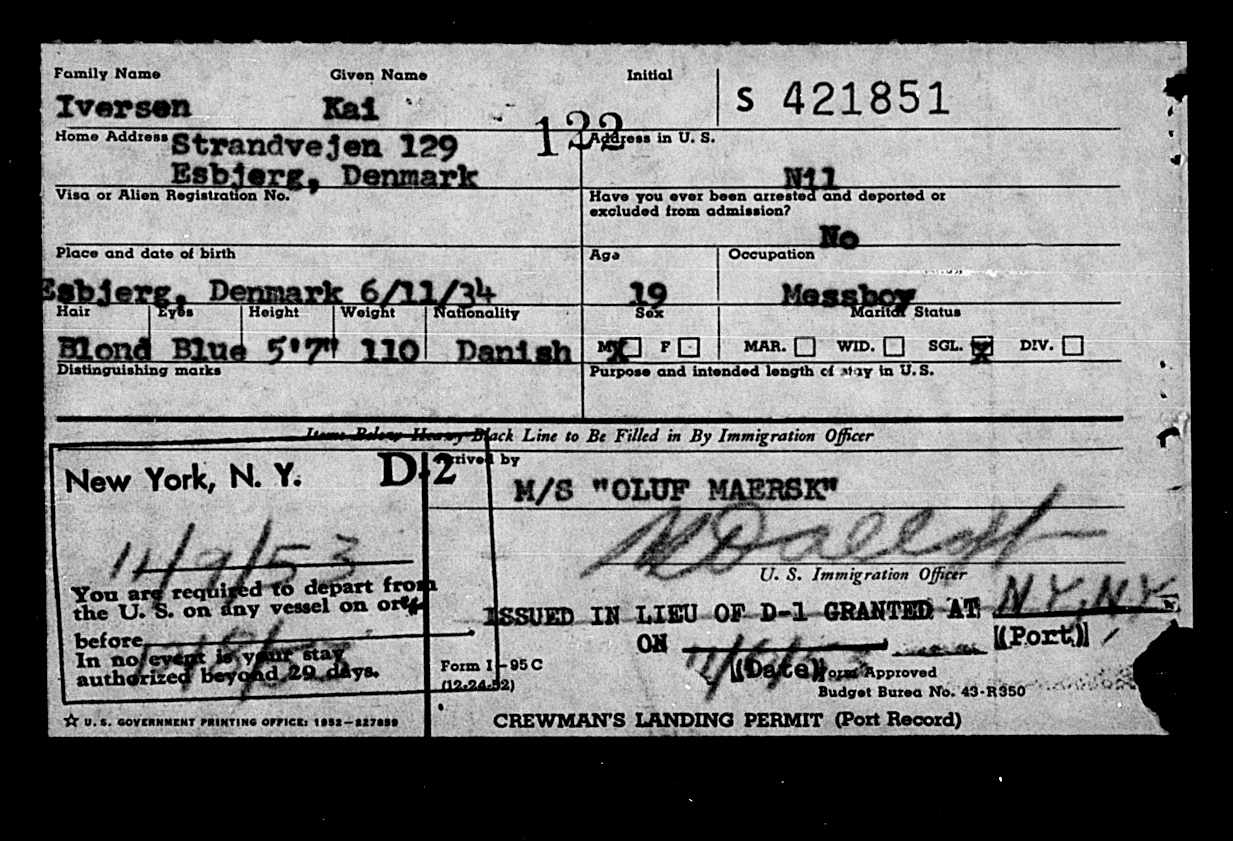 Family Name Given Name Initial
Iversen Kai S 421851
122
Home Address Strandvejen 129 Address in U. S.
Esbjerg, Denmark Nil
Visa or Alien Registration No. Have you ever been arrested and deported or
excluded from admission?
No
Place and date of birth Age Occupation
Esbjerg, Denmark 6/11/34 19 Messboy
Hair Eyes Height Weight Nationality Sex Marital Status
Blond Blue 5'7" 110 Danish M X F MAR. WID. SGL. X DIV.
Distinguishing marks Purpose and intended length of stay in U. S.
Items Below Heavy Black Line to Be Filled in By Immigration Officer
New York, N. Y. D-2 Arrived by
M/S "OLUF MAERSK"
11/9/53
U. S. Immigration Officer
You are required to depart from
the U. S. on any vessel on or
before
In no event is your stay
authorized beyond 29 days.
ISSUED IN LIEU OF D-1 GRANTED AT N.Y., N.Y.
ON (Date) (Port)
Form I-95 C
(12-24-52)
Form Approved
Budget Burea No. 43-R350
☆ U. S. GOVERNMENT PRINTING OFFICE: 1952—227899
CREWMAN'S LANDING PERMIT (Port Record)